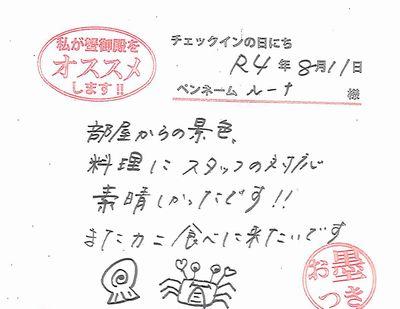 私が蟹御殿を
オススメ
します!!
チェックインの日にち
R4年8月11日
ペンネーム ルーナ 様
部屋からの景色、
料理にスタッフの対応
素晴しかったです!!
またカニ食べに来たいです
お墨
つき